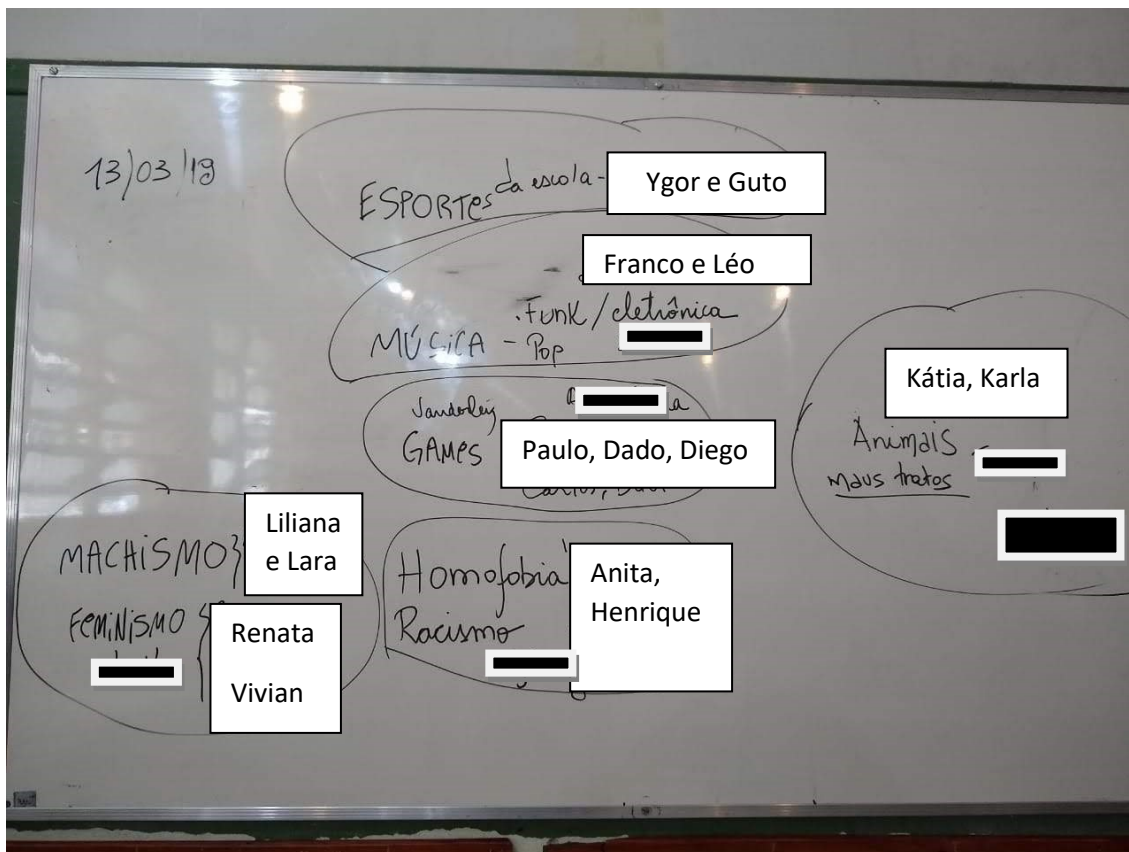 13/03/19
ESPORTES da escola - Ygor e Guto
Franco e Léo
. Funk / eletrônica
MÚSICA - Pop
Vanderley
GAMES Paulo, Dado, Diego
Kátia, Karla
Animais -
maus tratos
MACHISMO } Liliana
e Lara
FEMINISMO { Renata
Vivian
Homofobia Anita,
Henrique
Racismo